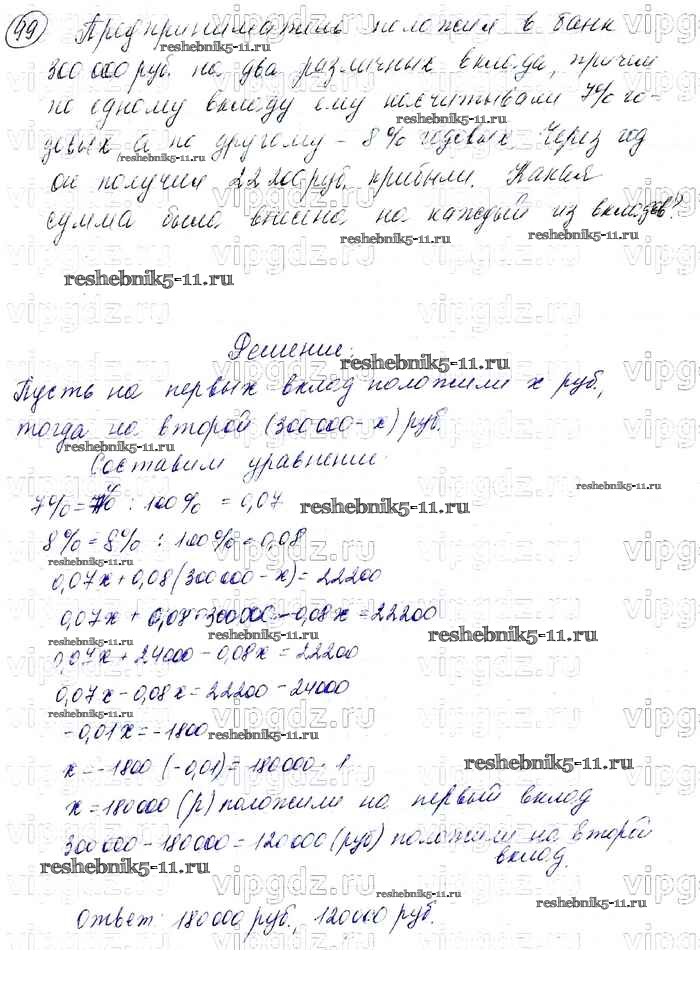 99 Предприниматель положил в банк
300 000 руб. на два различных вклада, причем
по одному вкладу ему насчитывали 7% го-
довых а по другому - 8% годовых. Через год
он получил 22200 руб. прибыли. Какая
сумма была внесена на каждый из вкладов?
Решение:
Пусть на первых вклад положили x руб,
тогда на второй (300 000 - x) руб.
Составим уравнение
7% = : 100% = 0,07
8% = 8% : 100% = 0,08
0,07x + 0,08(300 000 - x) = 22200
0,07x + 0,08 * 300000 - 0,08x = 22200
0,07x + 24000 - 0,08x = 22200
0,07x - 0,08x = 22200 - 24000
-0,01x = -1800
x = -1800 (-0,01) = 180000 · 1
x = 180000 (р) положили на первый вклад
300 000 - 180000 = 120000 (руб) положили на второй
вклад.
Ответ: 180000 руб., 120000 руб.
reshebnik5-11.ru
vipgdz.ru